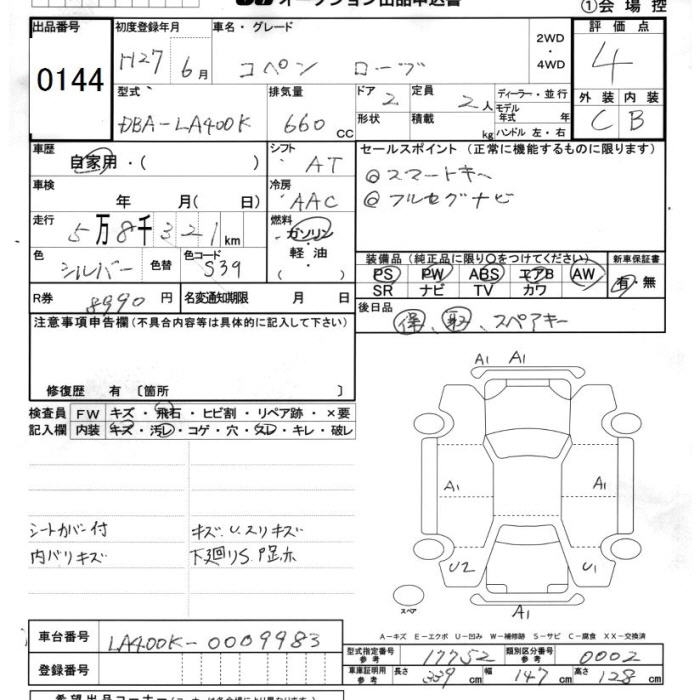 オークション出品申込書
①会場控
出品番号 0144
初度登録年月 H27 6月
車名・グレード コペン ローブ
2WD・4WD
評価点 4
外装 C 内装 B
型式 DBA-LA400K
排気量 660 CC
ドア 2
形状
定員 2人
積載 kg
ディーラー・並行
モデル年式 年
ハンドル 左・右
車歴 自家用・( )
シフト AT
セールスポイント (正常に機能するものに限ります)
◎スマートキー
◎フルセグナビ
車検 年 月( 日)
冷房 AAC
走行 5万8千321km
燃料 ガソリン・軽油・( )
色 シルバー 色替
色コード S39
装備品(純正品に限り○をつけてください) 新車保証書
PS PW ABS エアB AW 有・無
SR ナビ TV カワ
R券 8990円
名変通知期限 月 日
後日品 保、取、スペアキー
注意事項申告欄(不具合内容等は具体的に記入して下さい)
修復歴 有 〔箇所 〕
検査員記入欄
FW キズ・飛石・ヒビ割・リペア跡・×要
内装 キズ・汚レ・コゲ・穴・スレ・キレ・破レ
シートカバー付 キズ、U、スリキズ
内バリキズ 下廻りS、
A1 A1
A1 A1
U2 U1
A1
スペア
A-キズ E-エクボ U-凹み W-補修跡 S-サビ C-腐食 XX-交換済
車台番号 LA400K-0009983
登録番号
型式指定番号 参考 17752
類別区分番号 参考 0002
車庫証明用 参考 長さ 339cm 幅 147cm 高さ 128cm
希望出品コーナー